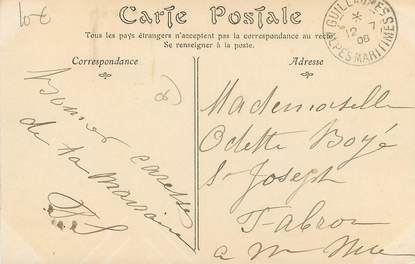 10 €
Carte Postale
Tous les pays étrangers n'acceptent pas la correspondance au recto.
Se renseigner à la poste.
Correspondance
Adresse
GUILLAUMES
12 - 7
08
ALPES MARITIMES
Bonnes caresses
de ta marraine
Mademoiselle
Odette Boyé
St Joseph
Fabron
Nice